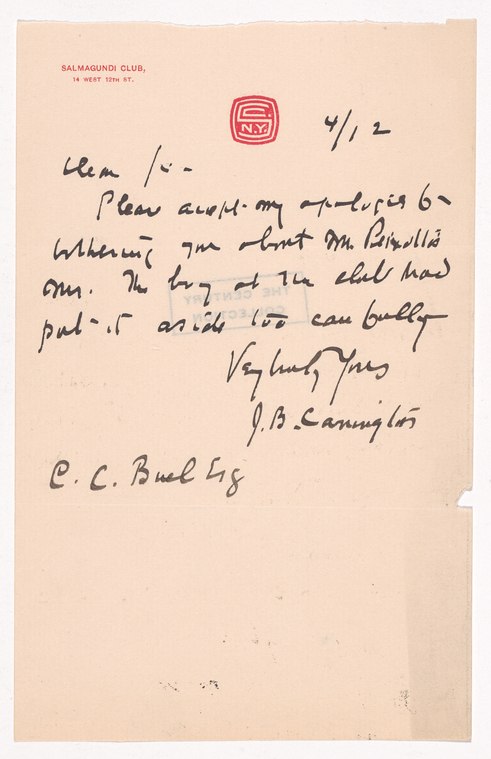 SALMAGUNDI CLUB,
14 WEST 12TH ST.
S.C.
N.Y.
4/12
Dear Sir -
Please accept my apologies for
bothering you about Mr. Peixotto's
The boy at the club had
put it aside too carefully
Very truly Yours
J.B. Carrington
C. C. Buel Esq
THE CENTURY
COLLECTION